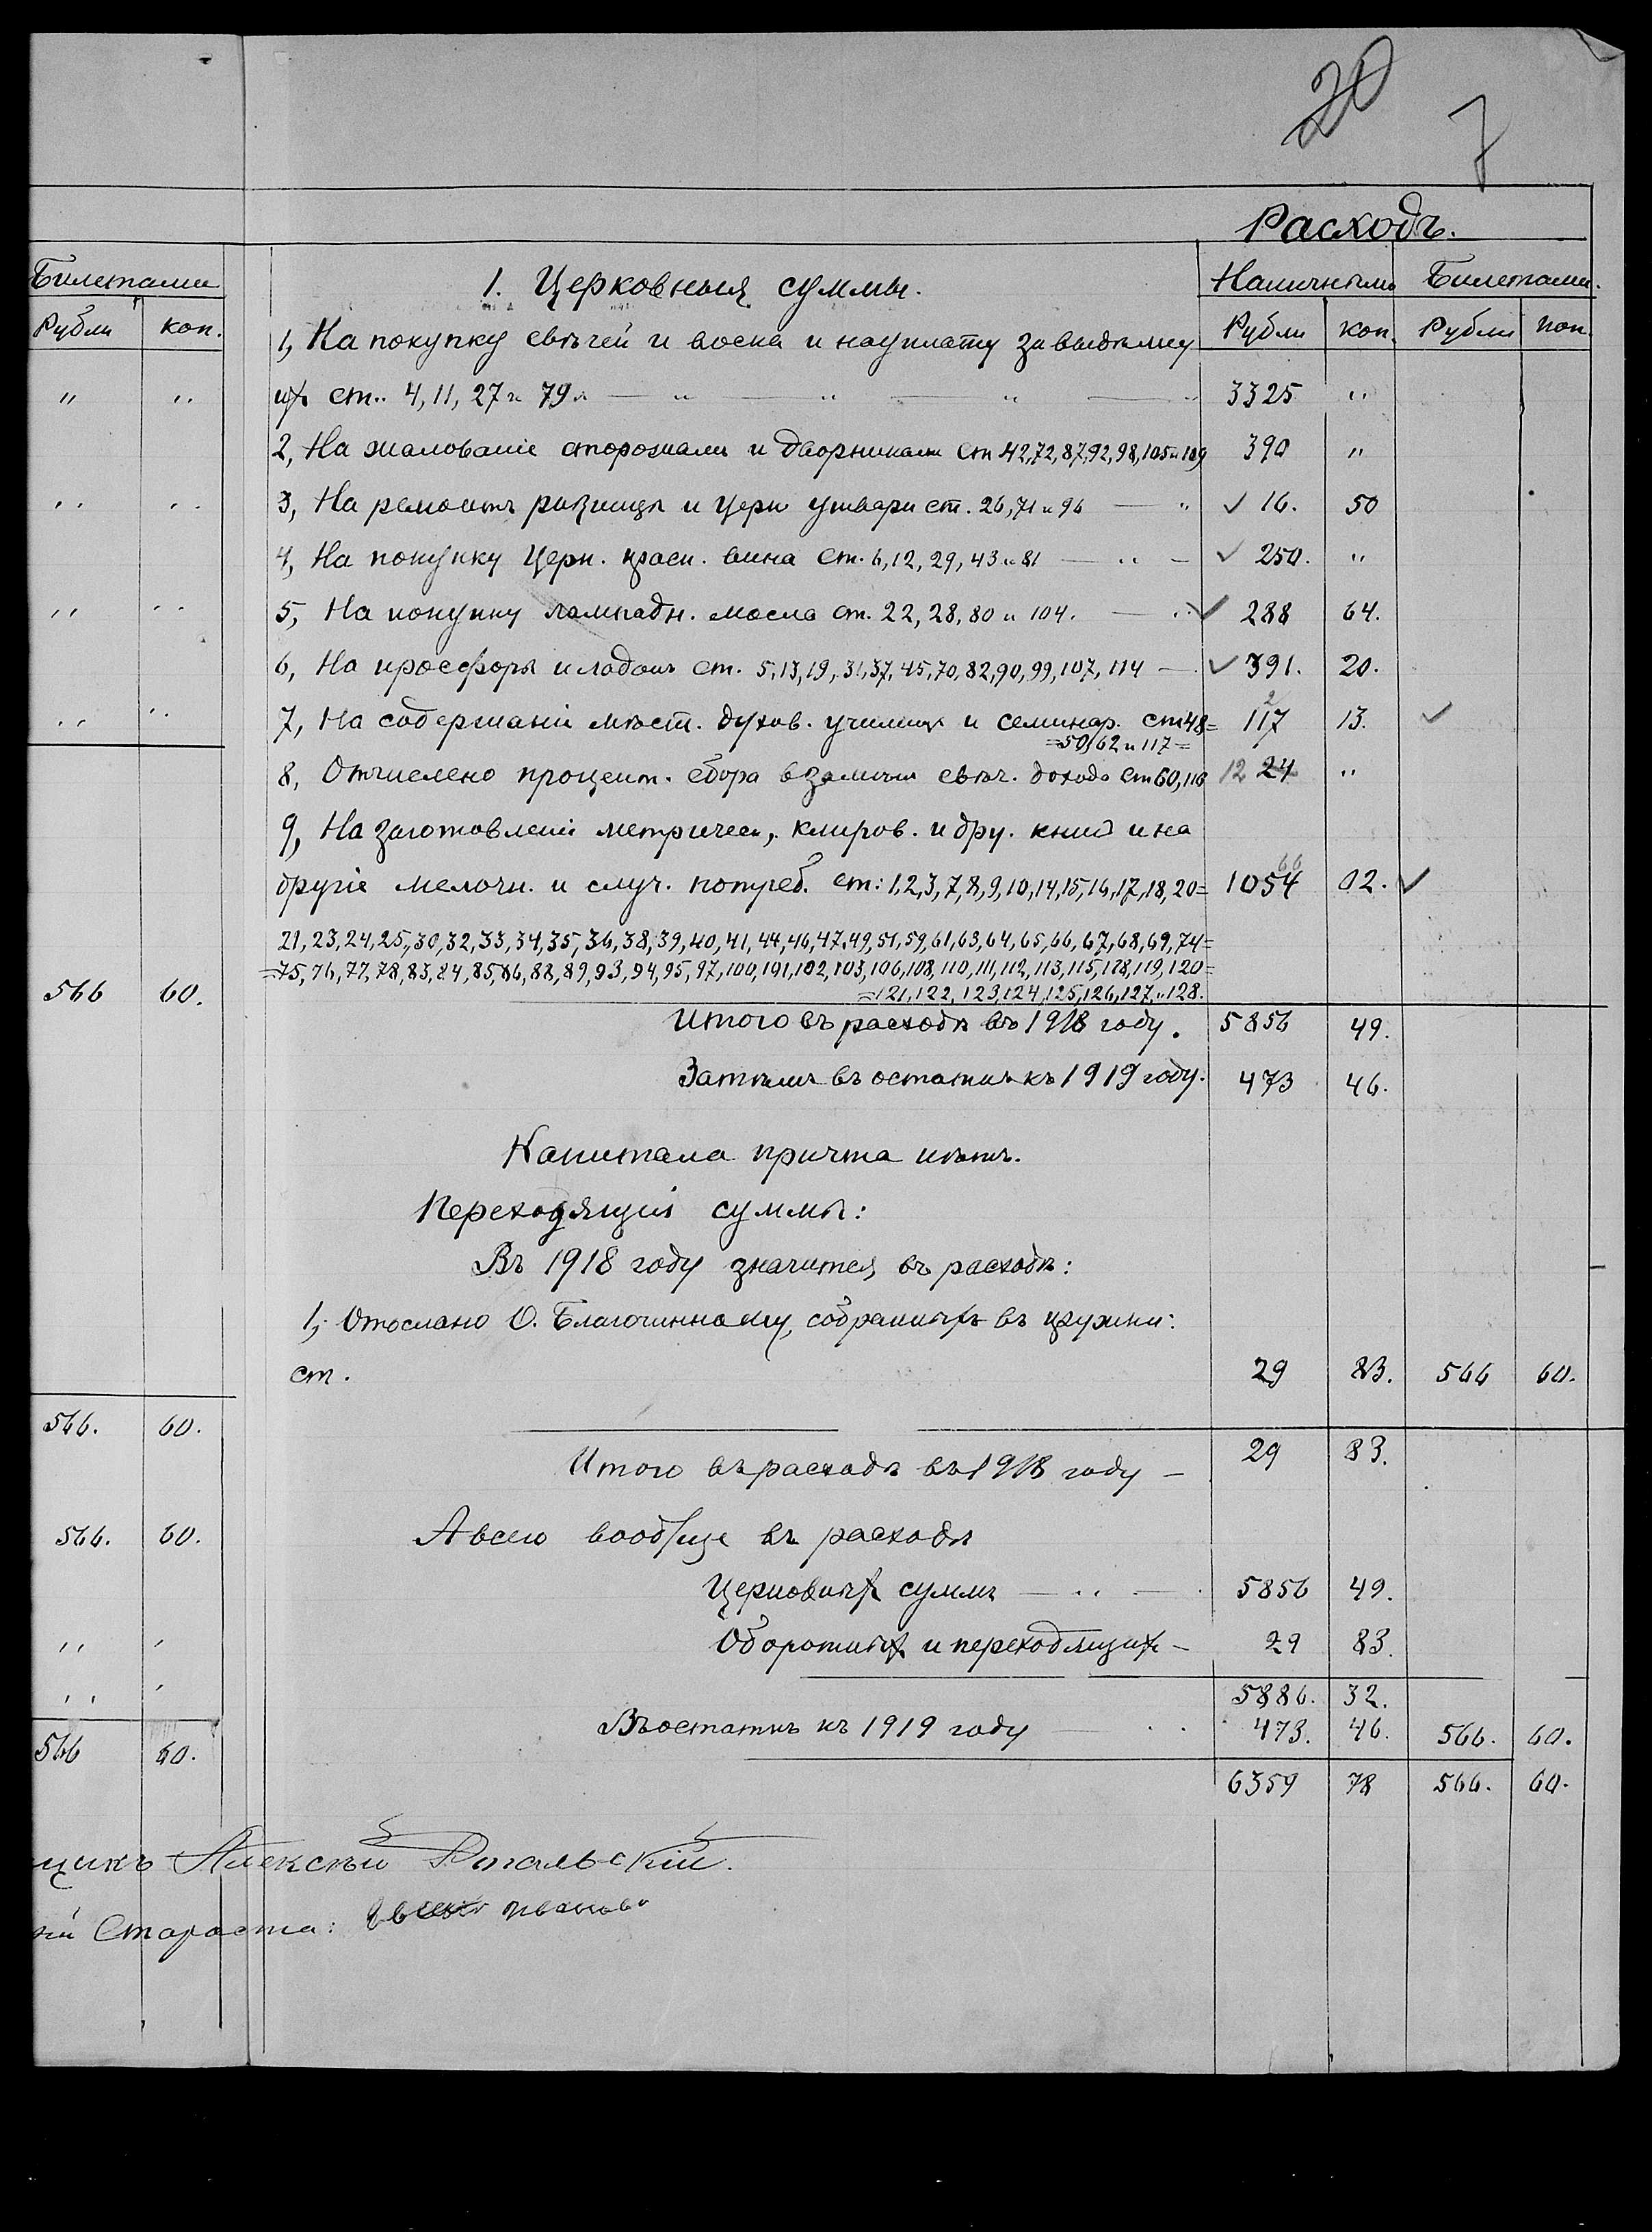 20
7
Расходъ.
Билетами
Рубли коп.
1. Церковныя суммы.
Наличными Билетами.
Рубли коп. Рубли коп.
1, На покупку свѣчей и воска и на уплату за выдѣлку
ихъ ст. 4, 11, 27 и 79 — " — " — " — " 3325 "
2, На жалованіе сторожамъ и дворникамъ ст 42,72,87,92,98,105 и 109 390 "
3, На ремонтъ ризницы и церк утвари ст. 26,71 и 96 — " 16. 50
4, На покупку церк. красн. вина ст. 6,12,29,43 и 81 — " — 250. "
5, На покупку лампадн. масла ст. 22,28,80 и 104. — " 288 64.
6, На просфоры и ладонъ ст. 5,13,19,31,37,45,70,82,90,99,107,114 — 391. 20.
7, На содержаніе мѣст. духов. училищъ и семинар. ст 48= 117 13.
=50,62 и 117=
8, Отчислено процент. сбора взамѣнъ свѣч. дохода ст 60,116 12 24 "
9, На заготовленіе метрическ, клиров. и дру. книг и на
66
другіе мелочн. и случ. потреб. ст: 1,2,3,7,8,9,10,14,15,16,17,18,20= 1054 02.
21,23,24,25,30,32,33,34,35,36,38,39,40,41,44,46,47,49,51,59,61,63,64,65,66,67,68,69,74=
=75,76,77,78,83,84,85,86,88,89,93,94,95,97,100,101,102,103,106,108,110,111,112,113,115,118,119,120=
566 60.
=121,122,123,124,125,126,127,и 128.
Итого въ расходѣ въ 1918 году. 5856 49.
Затѣмъ въ остаткѣ къ 1919 году. 473 46.
Капитала причта нѣтъ.
Переходящія суммы:
Въ 1918 году значится въ расходѣ:
1, Отослано О. Благочинному, собранныхъ въ кружки:
ст. 29 83. 566 60.
566. 60.
Итого въ расходѣ въ 1918 году — 29 83.
566. 60.
А всего вообще въ расходѣ
Церковныхъ суммъ — " — 5856 49.
Оборотныхъ и переходящихъ — 29 83.
5886. 32.
Въ остаткѣ къ 1919 году 473. 46. 566. 60.
566 60.
6359 78 566. 60.
щикъ Алексѣй Рогальскій.
Староста: